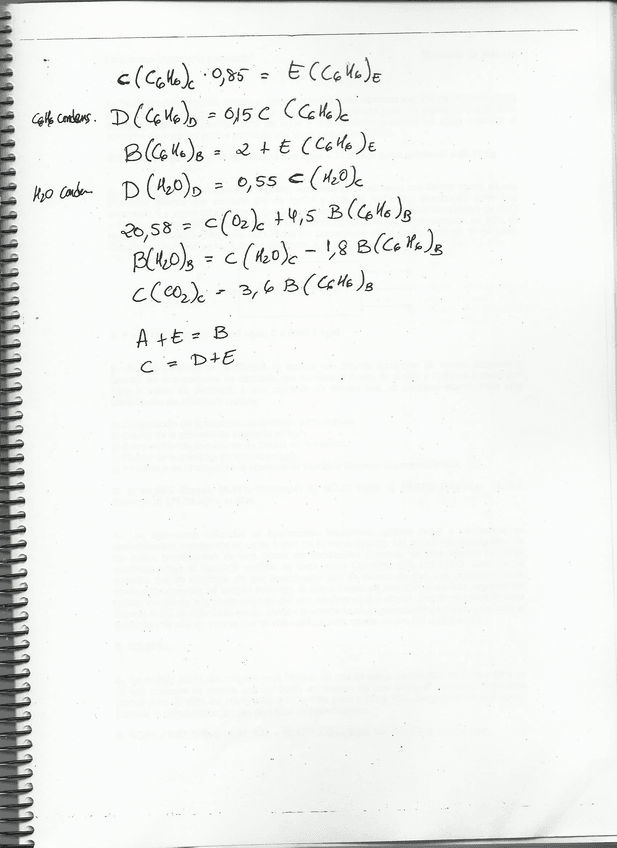 C(C6H6)C · 0,85 = E(C6H6)E
C6H6 condens. D(C6H6)D = 0,15 C (C6H6)C
B(C6H6)B = 2 + E (C6H6)E
H2O conden. D(H2O)D = 0,55 C(H2O)C
20,58 = C(O2)C + 4,5 B(C6H6)B
B(H2O)B = C(H2O)C - 1,8 B(C6H6)B
C(CO2)C = 3,6 B(C6H6)B
A + E = B
C = D+E